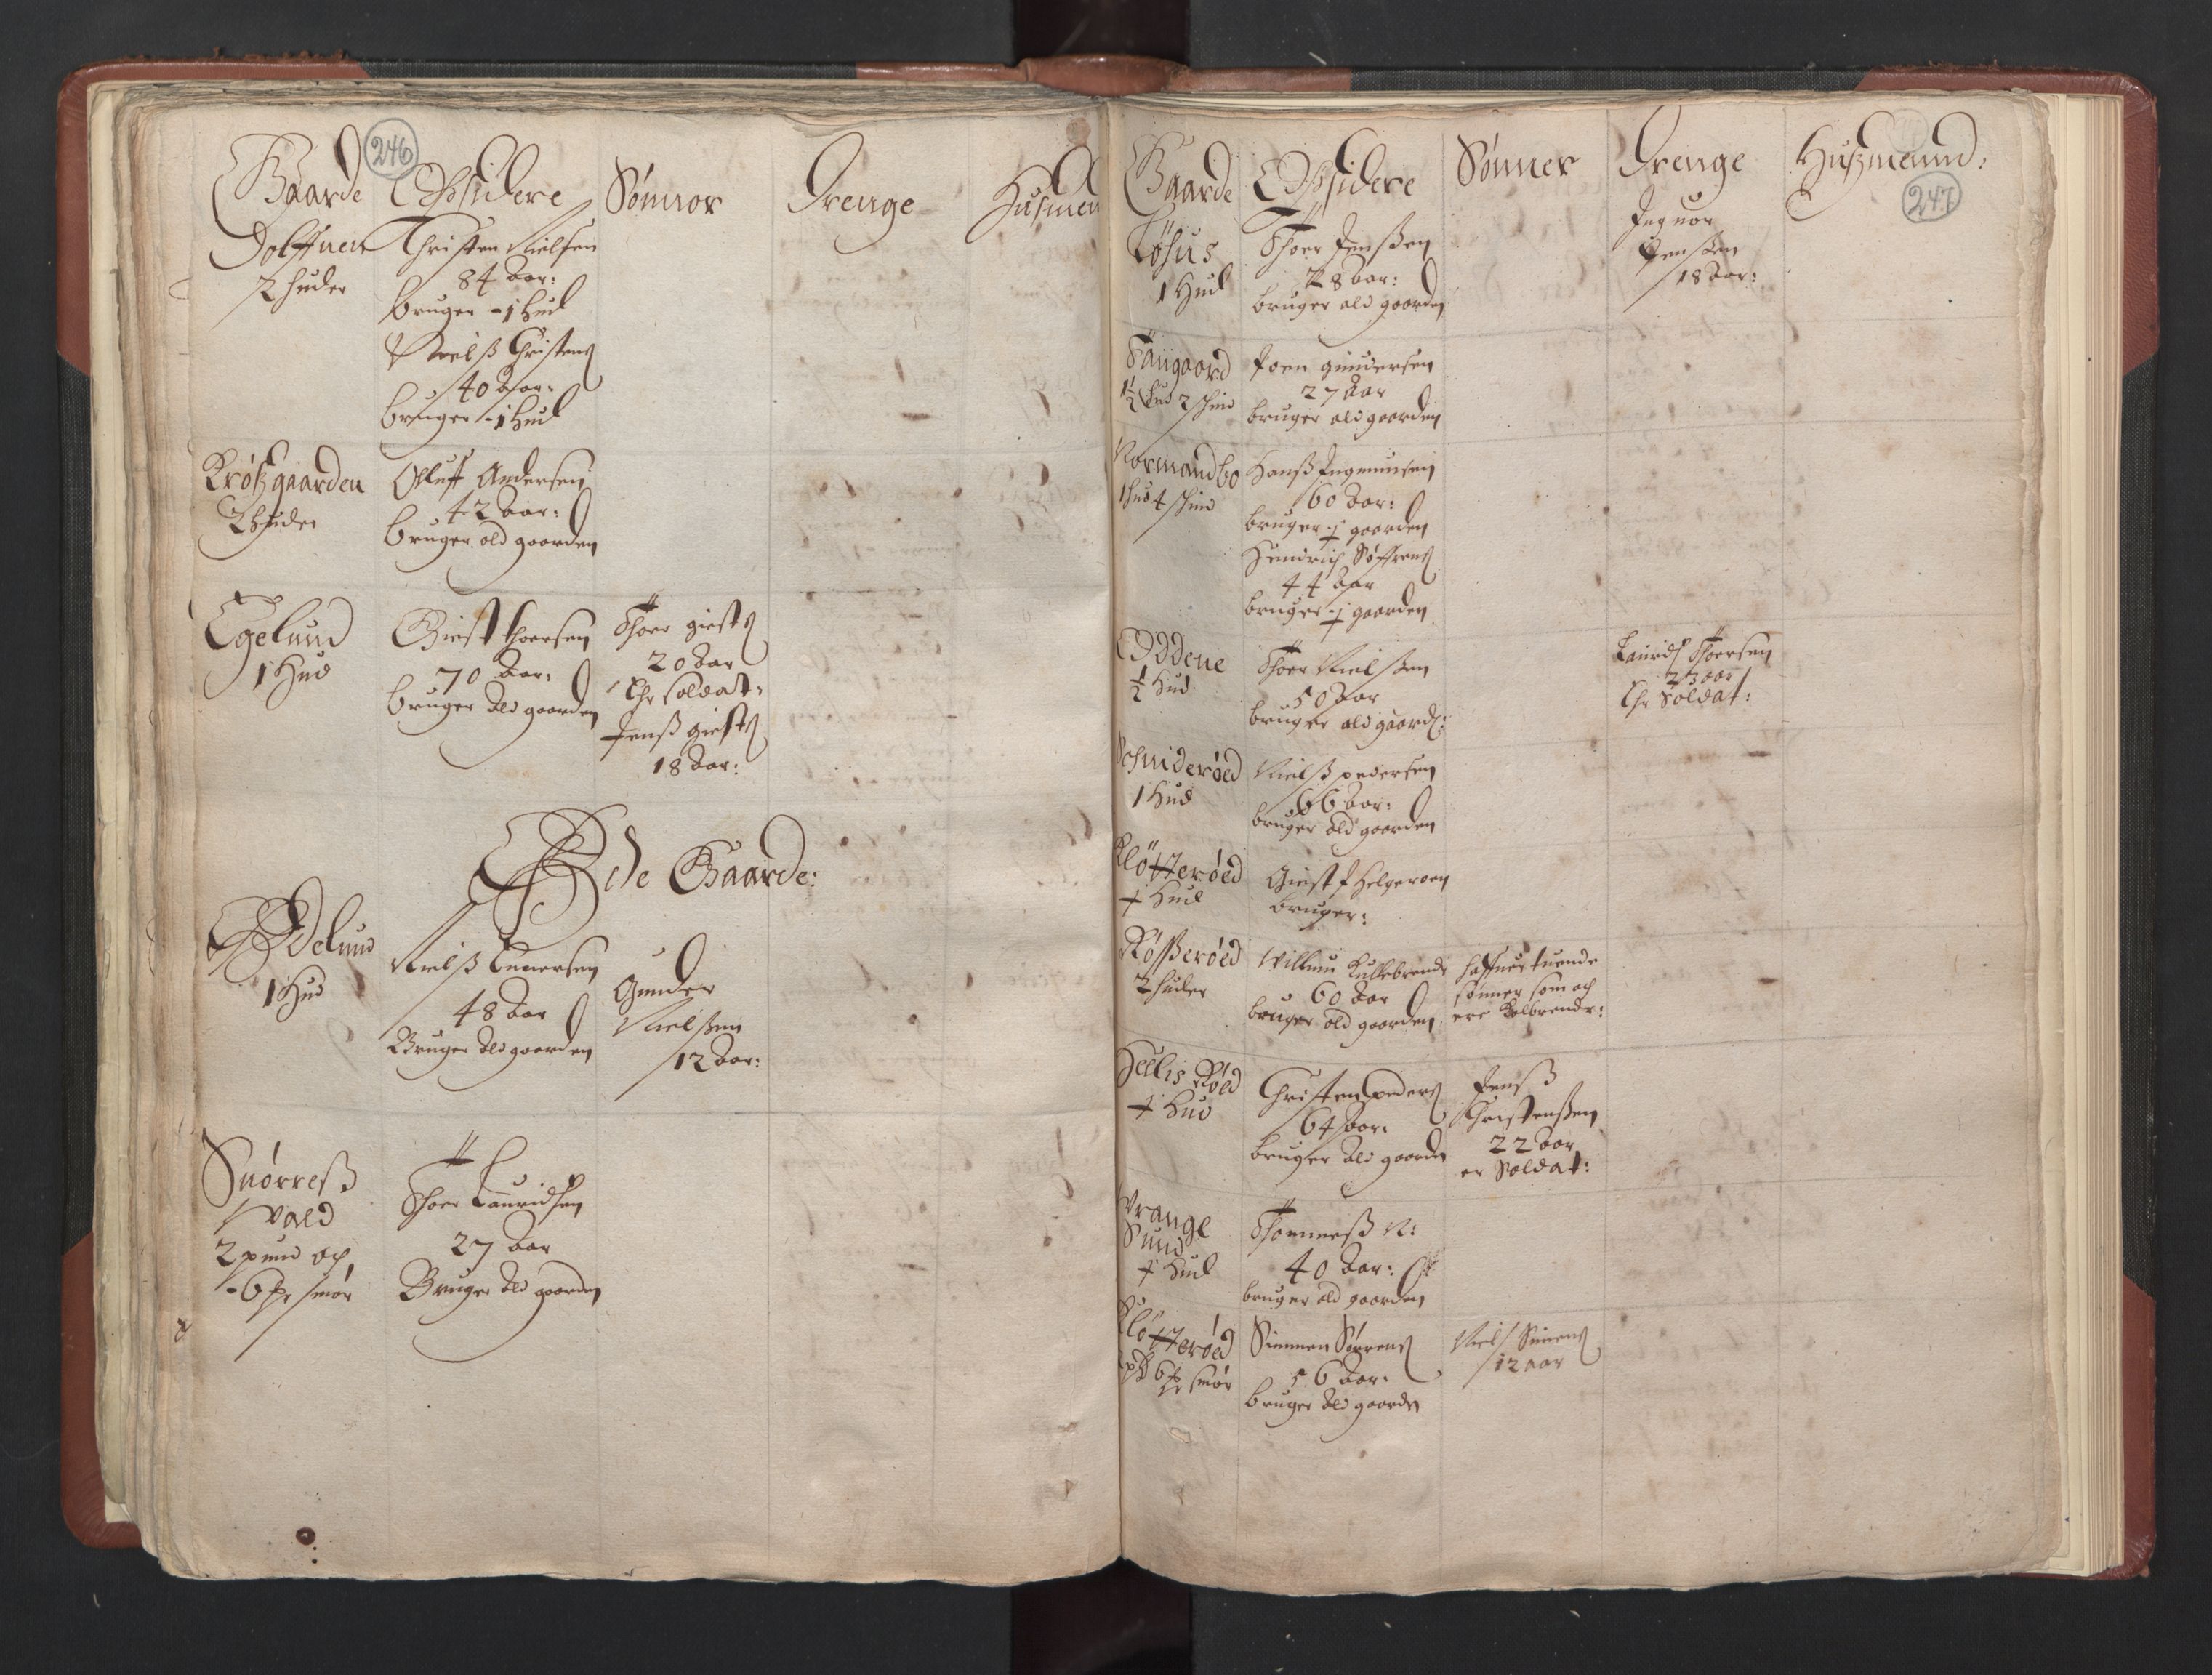 246
Gaarde Opsidere Sønner Drenge Husmen
Dolffuen
2 huder
Christen Nielsen
84 Aar:
bruger - 1 Hud
Nielß Christens
40 Aar:
bruger - 1 Hud
Krøtzgaarden
2 huder
Olluff Andersen
42 Aar:
bruger ald gaarden
Egelund
1 Hud
Giest Thorsen
70 Aar:
bruger ald gaarden
Thoer giests
20 Aar
Er soldat:
Jenß giests
18 Aar:
Øde Gaarde:
Ødelund
1 Hud
Nielß
48 Aar
Bruger ald gaarden
Gunder
Nielßen
12 Aar:
Snørreß
vald
2 pund och
- 6 smør
Thoer Lauridsen
27 Aar
Bruger ald gaarden
247
Gaarde Opsidere Sønner Drenge Hußmænd:
Løhus
1 Hud
Thoer Jenßen
28 aar:
bruger ald gaarden
Inguor
Jenßen
18 Aar:
Fangaard
1½ hud 2 skind
Joen gundersen
27 Aar
bruger ald gaarden
Normandbo
1 hud 4 skind
Hanß Ingmunsen
60 Aar:
bruger ½ gaarden
Hendrich Søffrens
44 Aar
bruger ½ gaarden
Oddene
½ Hud
Thoer Nielßen
50 Aar
bruger ald gaard:
Laurids Thoersen
23 aar
Er Soldat:
Schniderøed
1 Hud
Nielß pedersen
66 Aar:
bruger ald gaarden
Kløtterøed
½ Hud
Giest Helgeroen
bruger:
Røßerøed
2 huder
Willum Kullebrender
60 Aar
bruger ald gaarden
haffuer tuende
sønner som och
ere Kolbrendr:
Hellis Røed
½ Hud
Christen peders
64 Aar:
bruger ald gaarden
Jenß
Christenßen
22 Aar
er Soldat:
Wrange
Sund
½ Hud
Thommeß N:
40 Aar:
bruger ald gaarden
Kløtterøed
6 smør
Simmen Sørens
56 Aar:
bruger ald gaarden
Niels Simens
12 aar